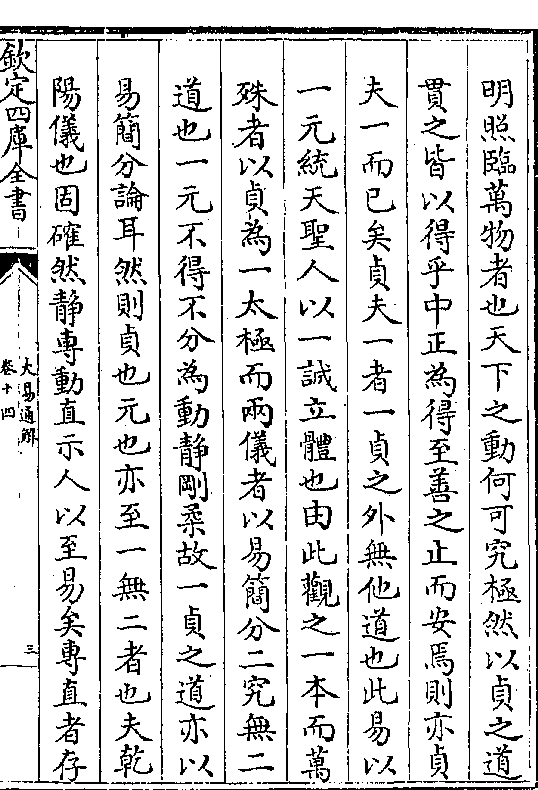 明照臨萬物者也天下之動何可究極然以貞之道
貫之皆以得乎中正為得至善之止而安焉則亦貞
夫一而已矣貞夫一者一貞之外無他道也此易以
一元統天聖人以一誠立體也由此觀之一本而萬
殊者以貞為一太極而兩儀者以易簡分二究無二
道也一元不得不分為動靜剛柔故一貞之道亦以
易簡分論耳然則貞也元也亦至一無二者也夫乾
陽儀也固確然静専動直示人以至易矣専直者存
欽定四庫全書
大易通解
卷十四
三